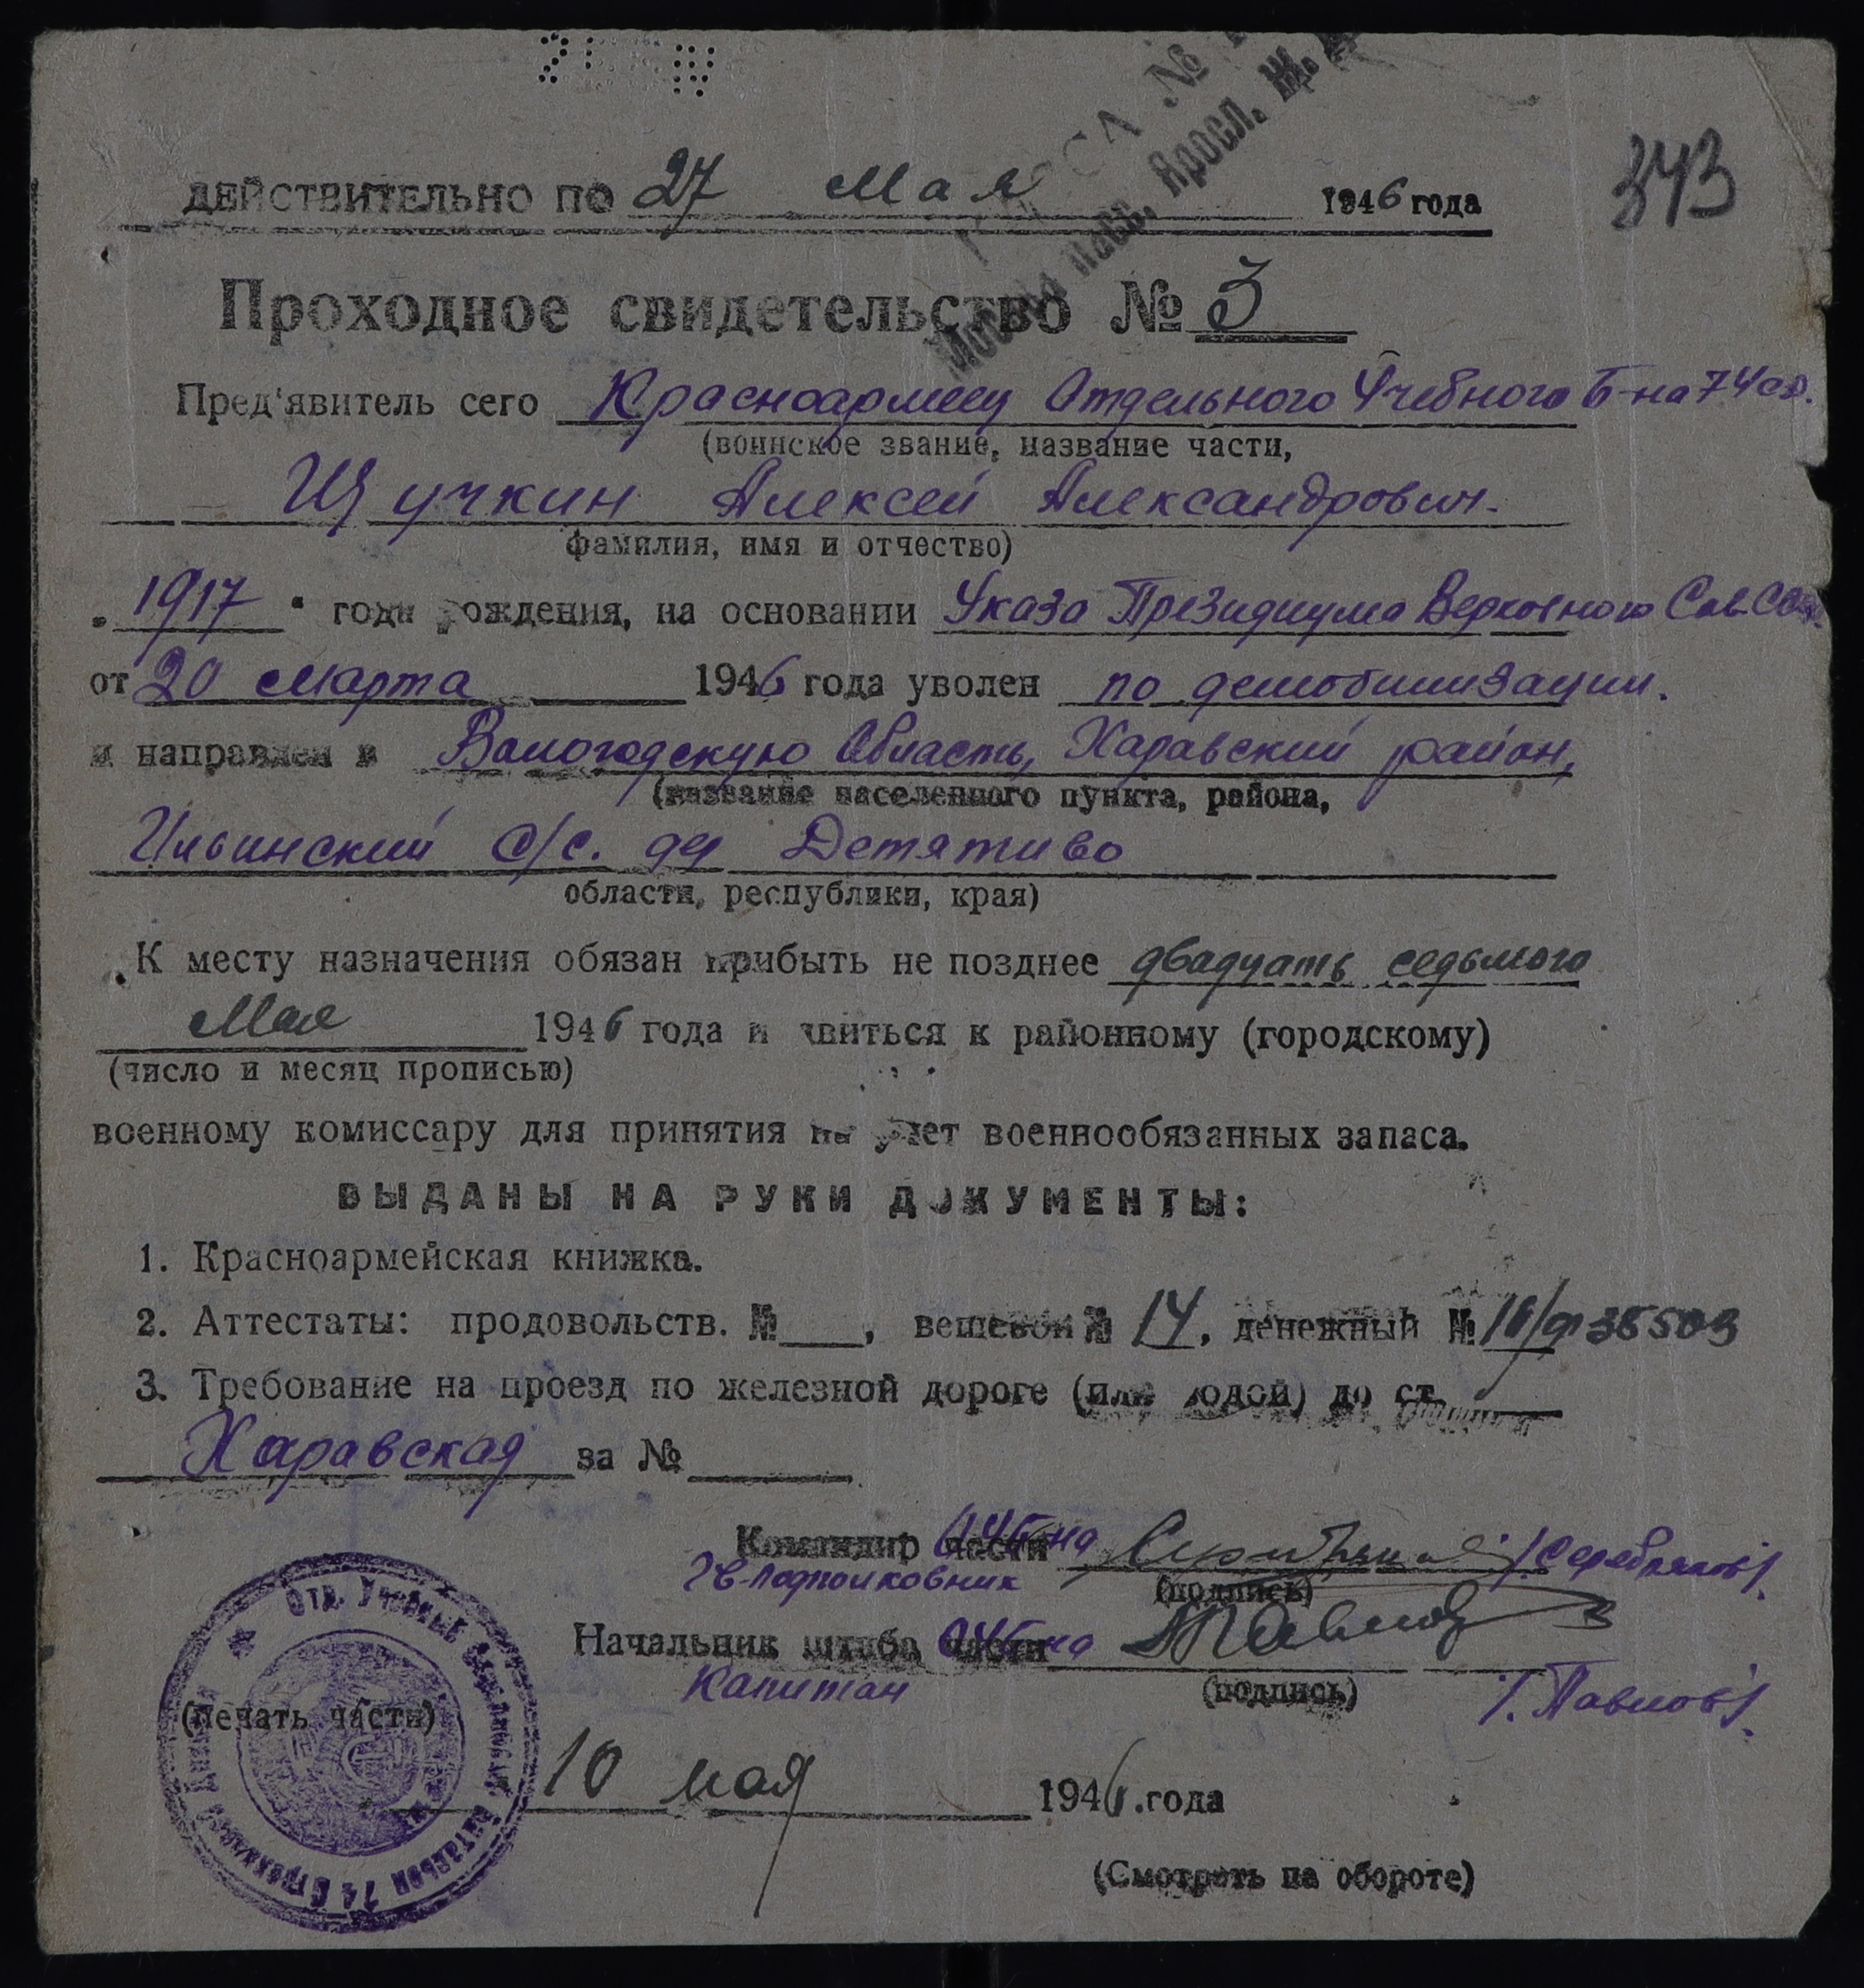 КАССА №
Москва пасс. Яросл. Ж. Д.
343
ДЕЙСТВИТЕЛЬНО ПО 27 Мая 1946 года
Проходное свидетельство № 3
Пред'явитель сего Красноармеец Отдельного Учебного Б-на 74 сд.
(воинское звание, название части,
Щучкин Алексей Александрович.
фамилия, имя и отчество)
„1917" года рождения, на основании Указа Президиума Верховного Сов. ССР.
от 20 марта 1946 года уволен по демобилизации.
и направлен в Вологодскую Область, Харавский район,
(название населенного пункта, района,
Ильинский с/с. дер Детятиво
области, республики, края)
К месту назначения обязан прибыть не позднее двадцать седьмого
Мая 1946 года и явиться к районному (городскому)
(число и месяц прописью)
военному комиссару для принятия на учет военнообязанных запаса.
ВЫДАНЫ НА РУКИ ДОКУМЕНТЫ:
1. Красноармейская книжка.
2. Аттестаты: продовольств. № , вещевой № 14, денежный № 16/9135503
3. Требование на проезд по железной дороге (или водой) до ст.
Харавская за №
Командир части ОУБ-на /Серебряков/.
Гв-подполковник (подпись)
Начальник штаба части ОУБ-на Павлов
Капитан (подпись) /Павлов/.
(печать части)
Отд. Учебный батальон 74 Стрелковой
10 мая 1946.года
(Смотреть на обороте)